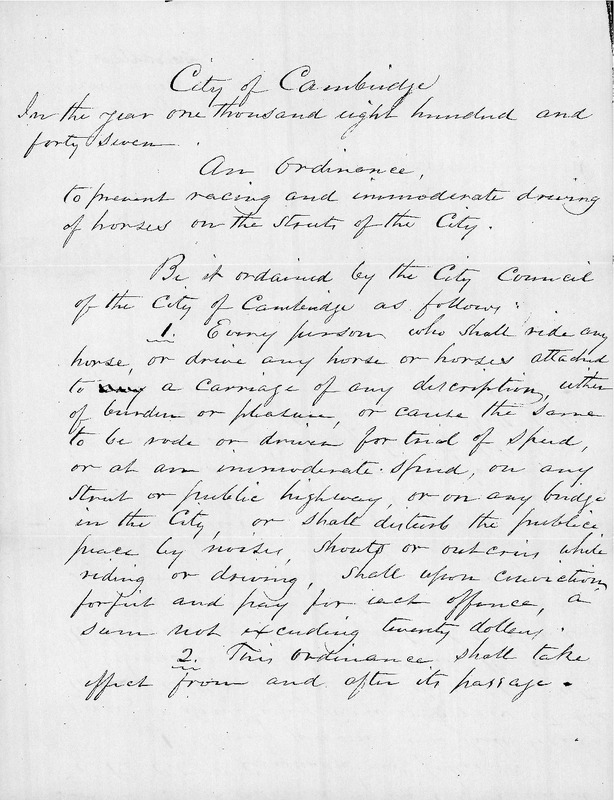 City of Cambridge
In the year one thousand eight hundred and
forty seven.
An Ordinance,
to prevent racing and immoderate driving
of horses on the streets of the City.
Be it ordained by the City Council
of the City of Cambridge as follows:
1. Every person who shall ride any
horse, or drive any horse or horses attached
to a carriage of any description, either
of burden or pleasure, or cause the same
to be rode or driven for trial of speed,
or at an immoderate speed, on any
street or public highway, or on any bridge
in the City, or shall disturb the public
peace by noises, shouts or outcries while
riding or driving, shall upon conviction
forfeit and pay for each offence, a
sum not exceeding twenty dollars.
2. This ordinance shall take
effect from and after its passage.